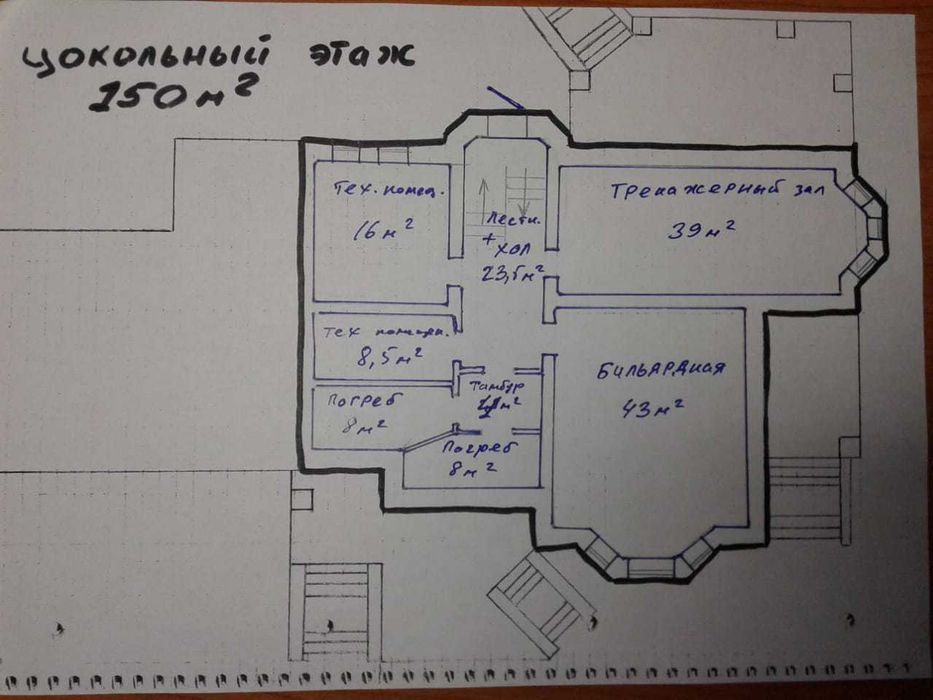 цокольный этаж
150 м²
Тех. помещ.
16 м²
Тренажерный зал
39 м²
Лестн.
+
хол
23,5 м²
Тех помещен.
8,5 м²
Бильярдная
43 м²
Тамбур
м²
Погреб
8 м²
Погреб
8 м²